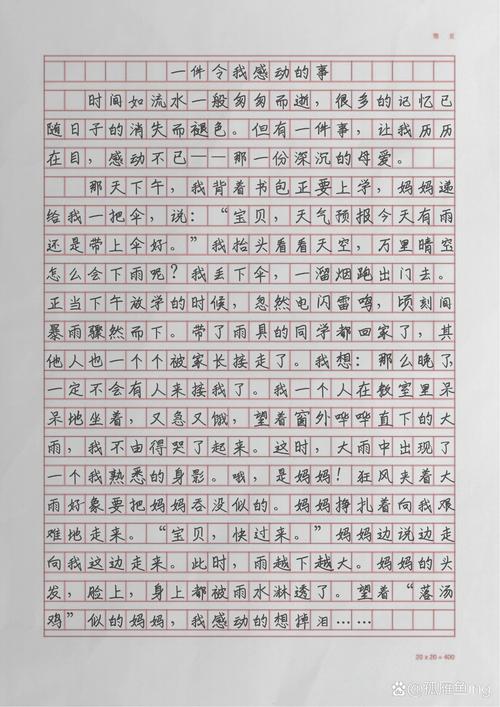 一件令我感动的事
时间如流水一般匆匆而逝，很多的记忆已
随日子的消失而褪色。但有一件事，让我历历
在目，感动不已——那一份深沉的母爱。
那天下午，我背着书包正要上学，妈妈递
给我一把伞，说：“宝贝，天气预报今天有雨
还是带上伞好。”我抬头看看天空，万里晴空
怎么会下雨呢？我丢下伞，一溜烟跑出门去。
正当下午放学的时候，忽然电闪雷鸣，顷刻间
暴雨骤然而下。带了雨具的同学都回家了，其
他人也一个个被家长接走了。我想：那么晚了，
一定不会有人来接我了。我一个人在教室里呆
呆地坐着，又急又饿，望着窗外哗哗直下的大
雨，我不由得哭了起来。这时，大雨中出现了
一个我熟悉的身影。哦，是妈妈！狂风夹着大
雨好象要把妈妈吞没似的。妈妈挣扎着向我艰
难地走来。“宝贝，快过来。”妈妈边说边走
向我这边走来。此时，雨越下越大。妈妈的头
发，脸上，身上都被雨水淋透了。望着“落汤
鸡”似的妈妈，我感动的想摔泪……
20 x 20 = 400
@孤雁鱼ing